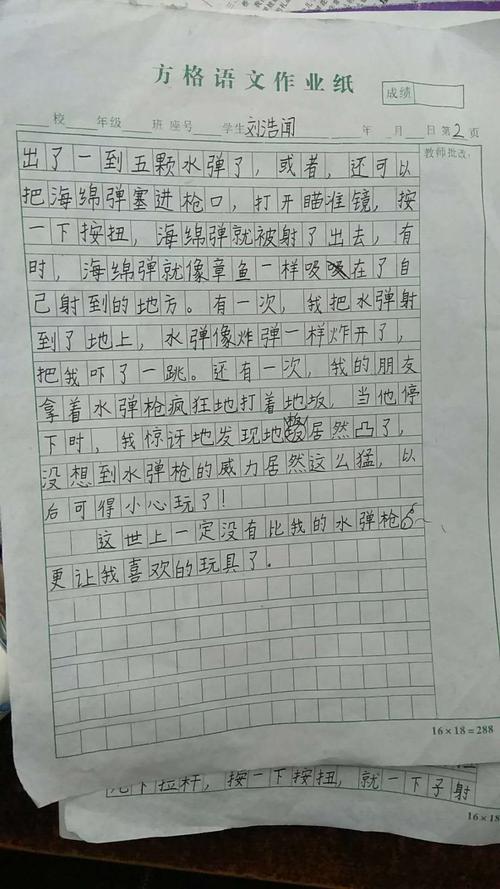 方格语文作业纸
成绩
校 年级 班 座号 学生 刘浩闻 年 月 日 第2页
教师批改:
出了一到五颗水弹了，或者，还可以
把海绵弹塞进枪口，打开瞄准镜，按
一下按扭，海绵弹就被射了出去，有
时，海绵弹就像章鱼一样吸在了自
己射到的地方。有一次，我把水弹射
到了地上，水弹像炸弹一样炸开了，
把我吓了一跳。还有一次，我的朋友
拿着水弹枪疯狂地打着地板，当他停
下时，我惊讶地发现地居然凸了，
没想到水弹枪的威力居然这么猛，以
后可得小心玩了！
这世上一定没有比我的水弹枪
更让我喜欢的玩具了。
16×18=288
下拉杆，按一下按扭，就一下子射
16×18